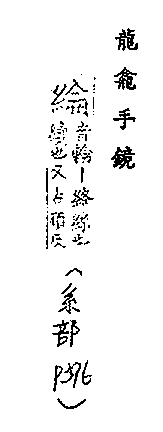 龍龕手鏡
綸
音輪丨絡絲也
也又古頑反
(糸部 P396)